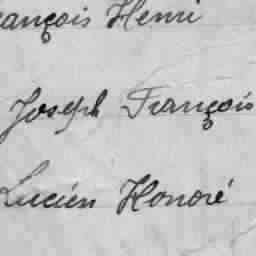 ançois Henri
Joseph François
Lucien Honoré